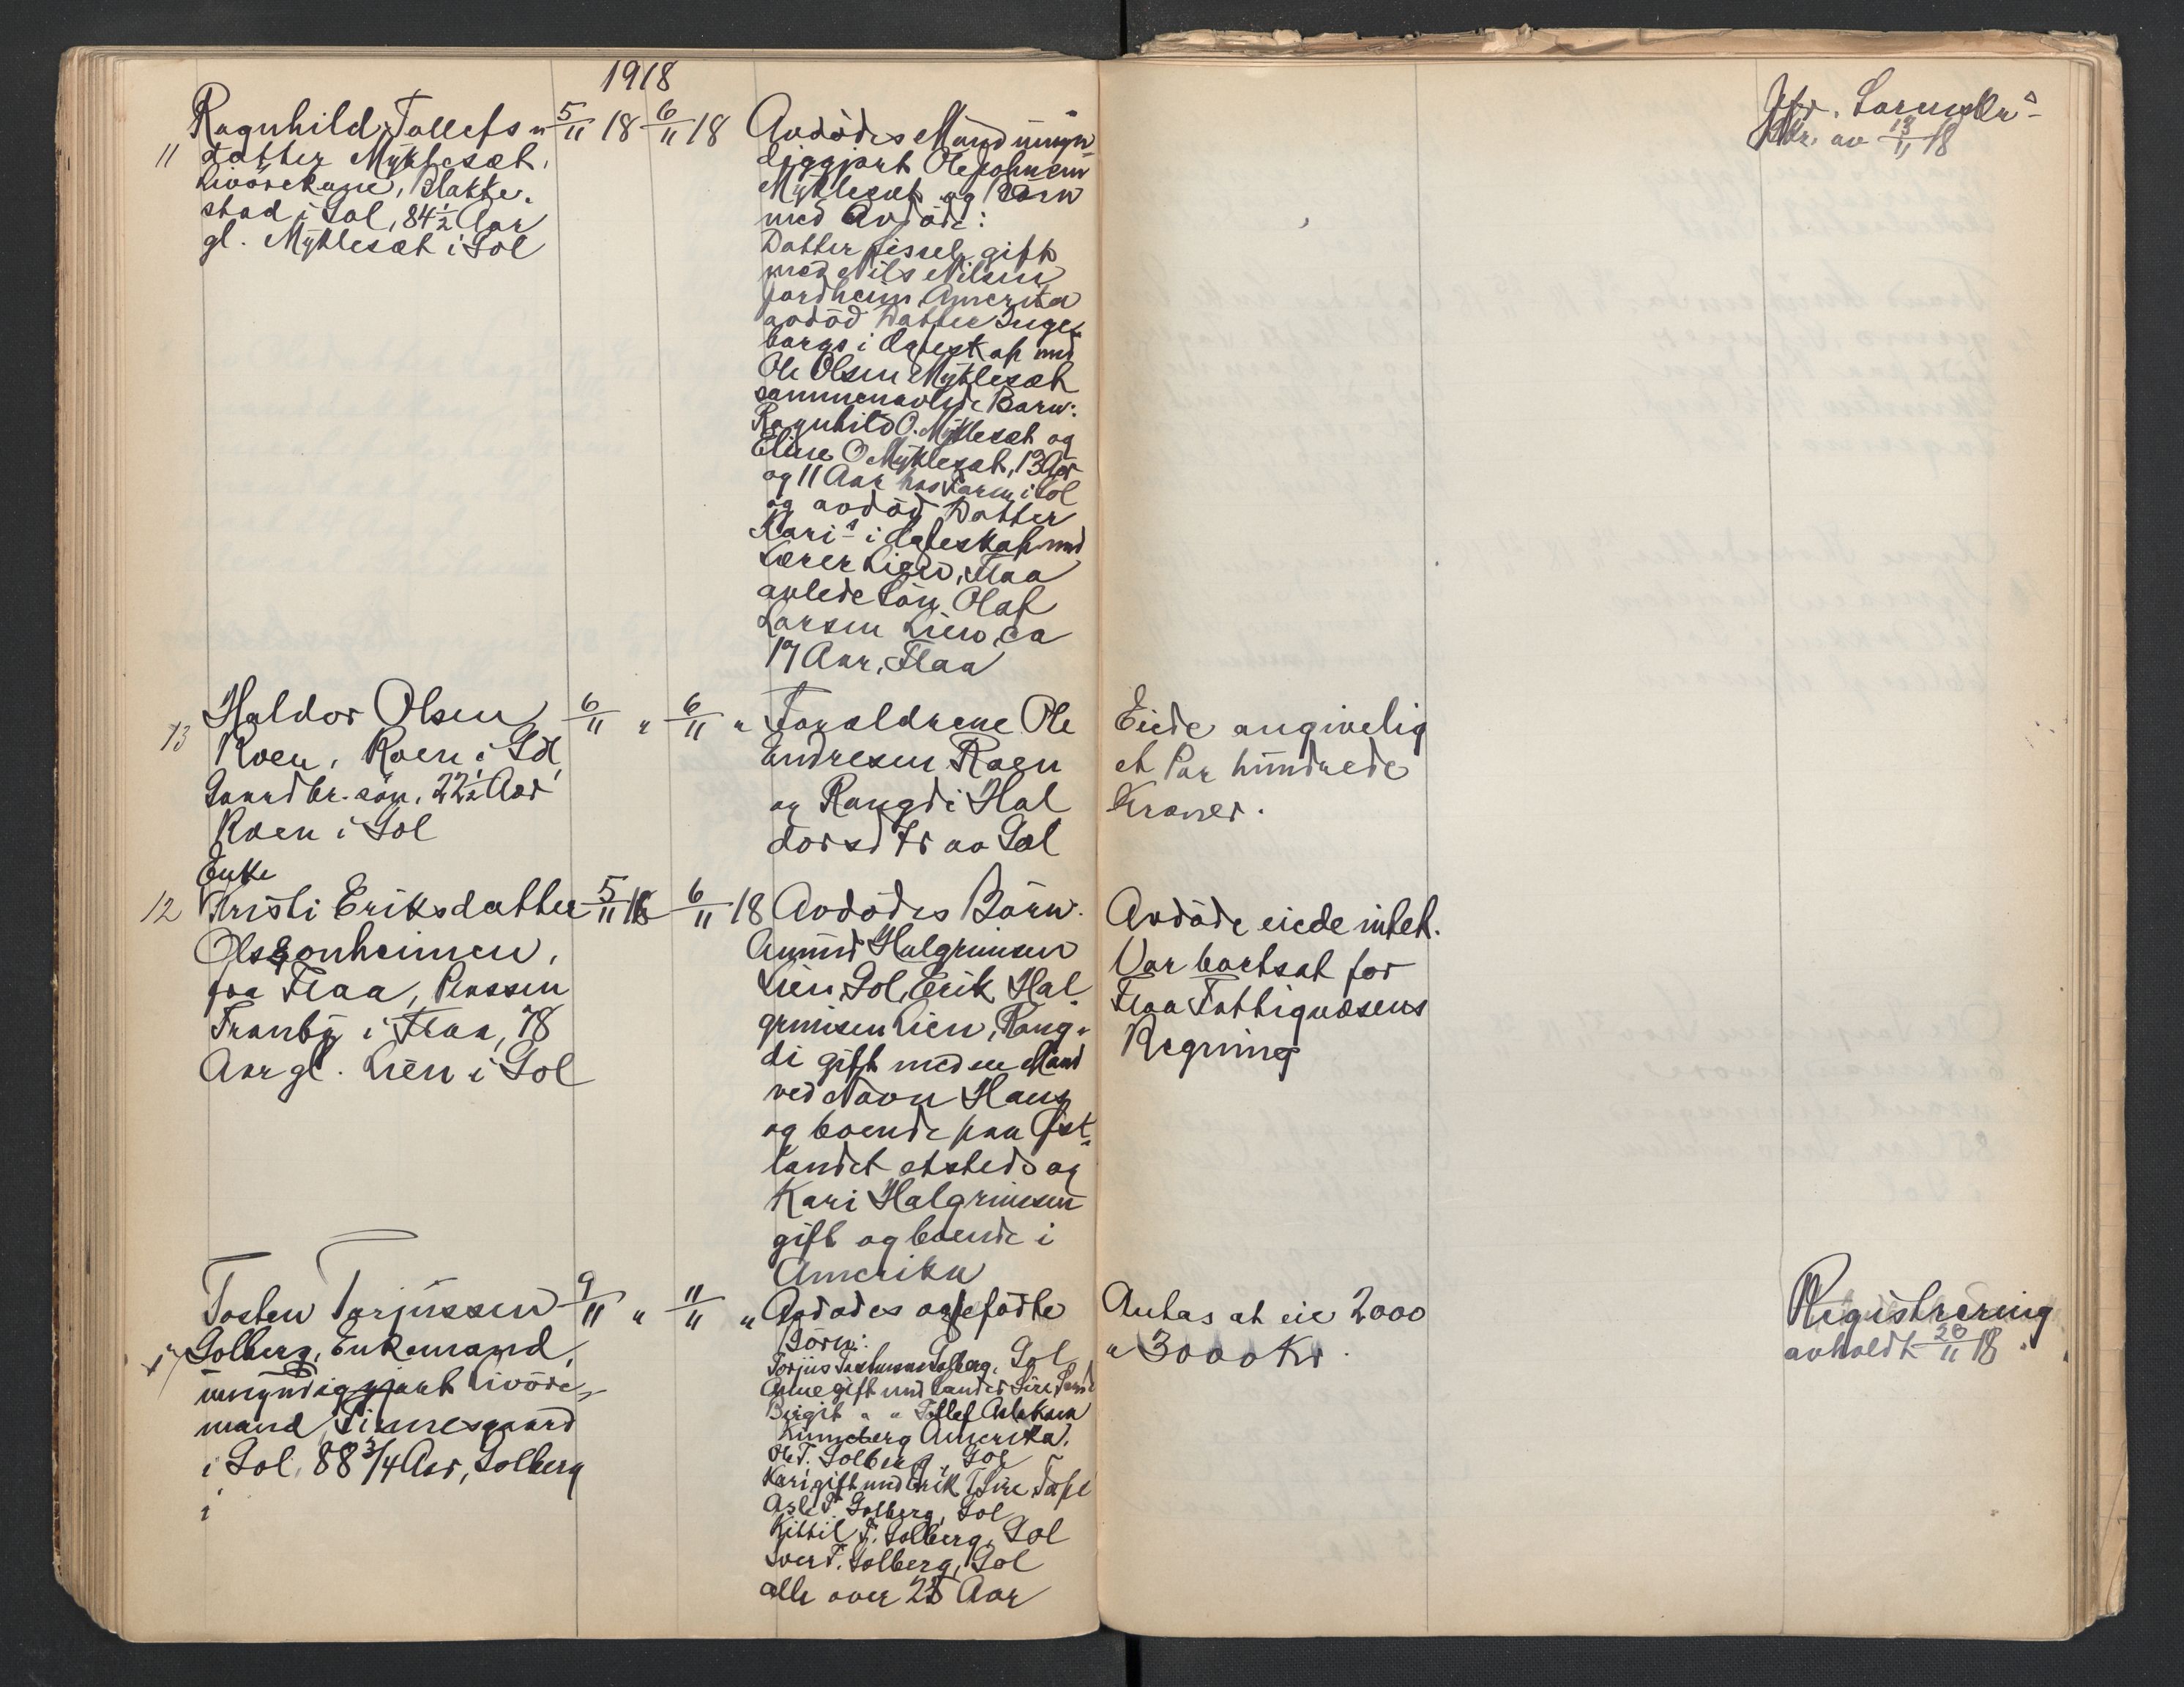 1918
Ragnhild Tollefs- 5/11 18 6/11 18
11 datter Myklesæt,
Livörekone, Blakke-
stad i Gol, 84 1/2 Aar
gl. Myklesæt i Gol
Avdödes Mand umyn-
diggjort Ole Johnsen
Myklesæt og Börn
med Avdöde:
Datter Sissel gift
med Nils Nilsen
Jordheim, Amerika
avdöd Datter Inge-
borgs i Egteskap med
Ole Olsen Myklesæt
sammenavlede Barn:
Ragnhild O. Myklesæt og
Eline O Myklesæt, 13 Aar
og 11 Aar hos Faren i Gol
og avdöd Datter
Kari's i Egteskap med
Lærer Lien, Flaa
avlede Sön Olaf
Larsen Lien, ca
17 Aar, Flaa
Jfr.
Skr. av 13/11 18
13 Haldor Olsen 6/11 " 6/11 "
Roen, Roen i Gol,
Gaardbr. sön, 22 1/2 Aar
Roen i Gol
Forældrene Ole
Endresen Roen
og Rangdi Hal
dorsdtr av Gol
Eiede angivelig
et Par hundrede
Kroner.
Enke
12 Kristi Eriksdatter 5/11 18 6/11 18
Olsgonheimen,
fra Flaa, Plassen
Tranby i Flaa, 78
Aar gl. Lien i Gol
Avdödes Börn:
Amund Halgrimsen
Lien, Gol, Erik Hal-
grimsen Lien, Rang-
di gift med en Mand
ved Navn Hans
og boende paa Öst-
landet etsteds og
Kari Halgrimsen
gift og boende i
Amerika
Avdöde eiede intet.
Var bortsat for
Flaa Fattigvæsens
Regning
Tosten Torjussen 9/11 " 11/11 "
Golberg, Enkemand,
umyndiggjort Livöre-
mand, Finnesgaard
i Gol, 88 3/4 Aar, Golberg
i
Avdödes egtefödte
Börn:
Torjus Tostensen Golberg, Gol
Anne gift med
Birgit " " Tollef Aslaksen
Kinneberg Amerika,
Ole T. Golberg, Gol
Kari gift med Erik
Asle T. Golberg, Gol
Kittil T. Golberg, Gol
Iver T. Golberg, Gol
alle over 25 Aar
Antas at eie 2000
a 3000 Kr.
Registrering
avholdt 20/11 18.